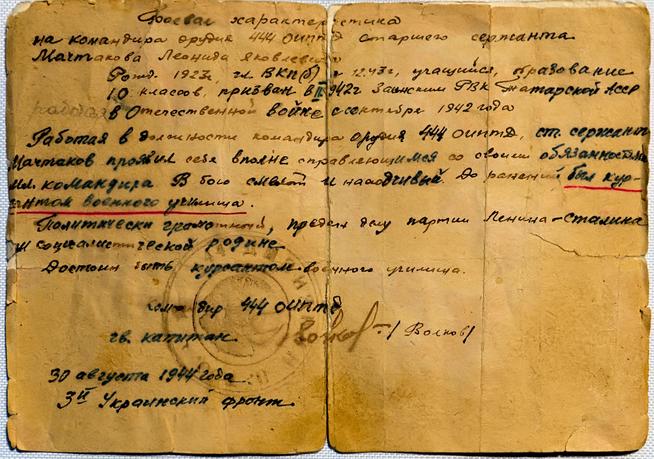 Боевая характеристика
на командира орудия 444 ОИПТД старшего сержанта
Мачтакова Леонида Яковлевича
Рожд. 1923г, чл. ВКП(б) с 12.43г, учащийся, образование
10 классов, призван в 1942г Заинским РВК Татарской АССР
в Отечественной войне с сентября 1942 года
Работая в должности командира орудия 444 ОИПТД, ст. сержант
Мачтаков проявил себя вполне справляющимся со своими обязанностя
ми командира. В бою смелый и находчивый. До ранения был кур-
сантом военного училища.
Политически грамотный, предан делу партии Ленина-Сталина
и социалистической родине
Достоин быть курсантом военного училища.
Командир 444 ОИПТД
гв. капитан /Волков/
30 августа 1944 года
3й Украинский фронт